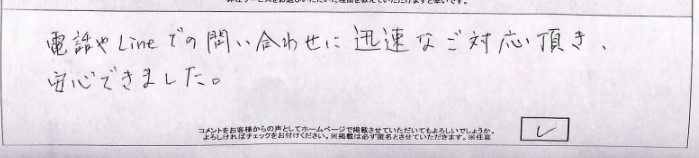 電話やLineでの問い合わせに迅速なご対応頂き、
安心できました。
コメントをお客様からの声としてホームページで掲載させていただいてもよろしいでしょうか。
よろしければチェックをお付けください。※掲載は必ず匿名とさせていただきます。※任意